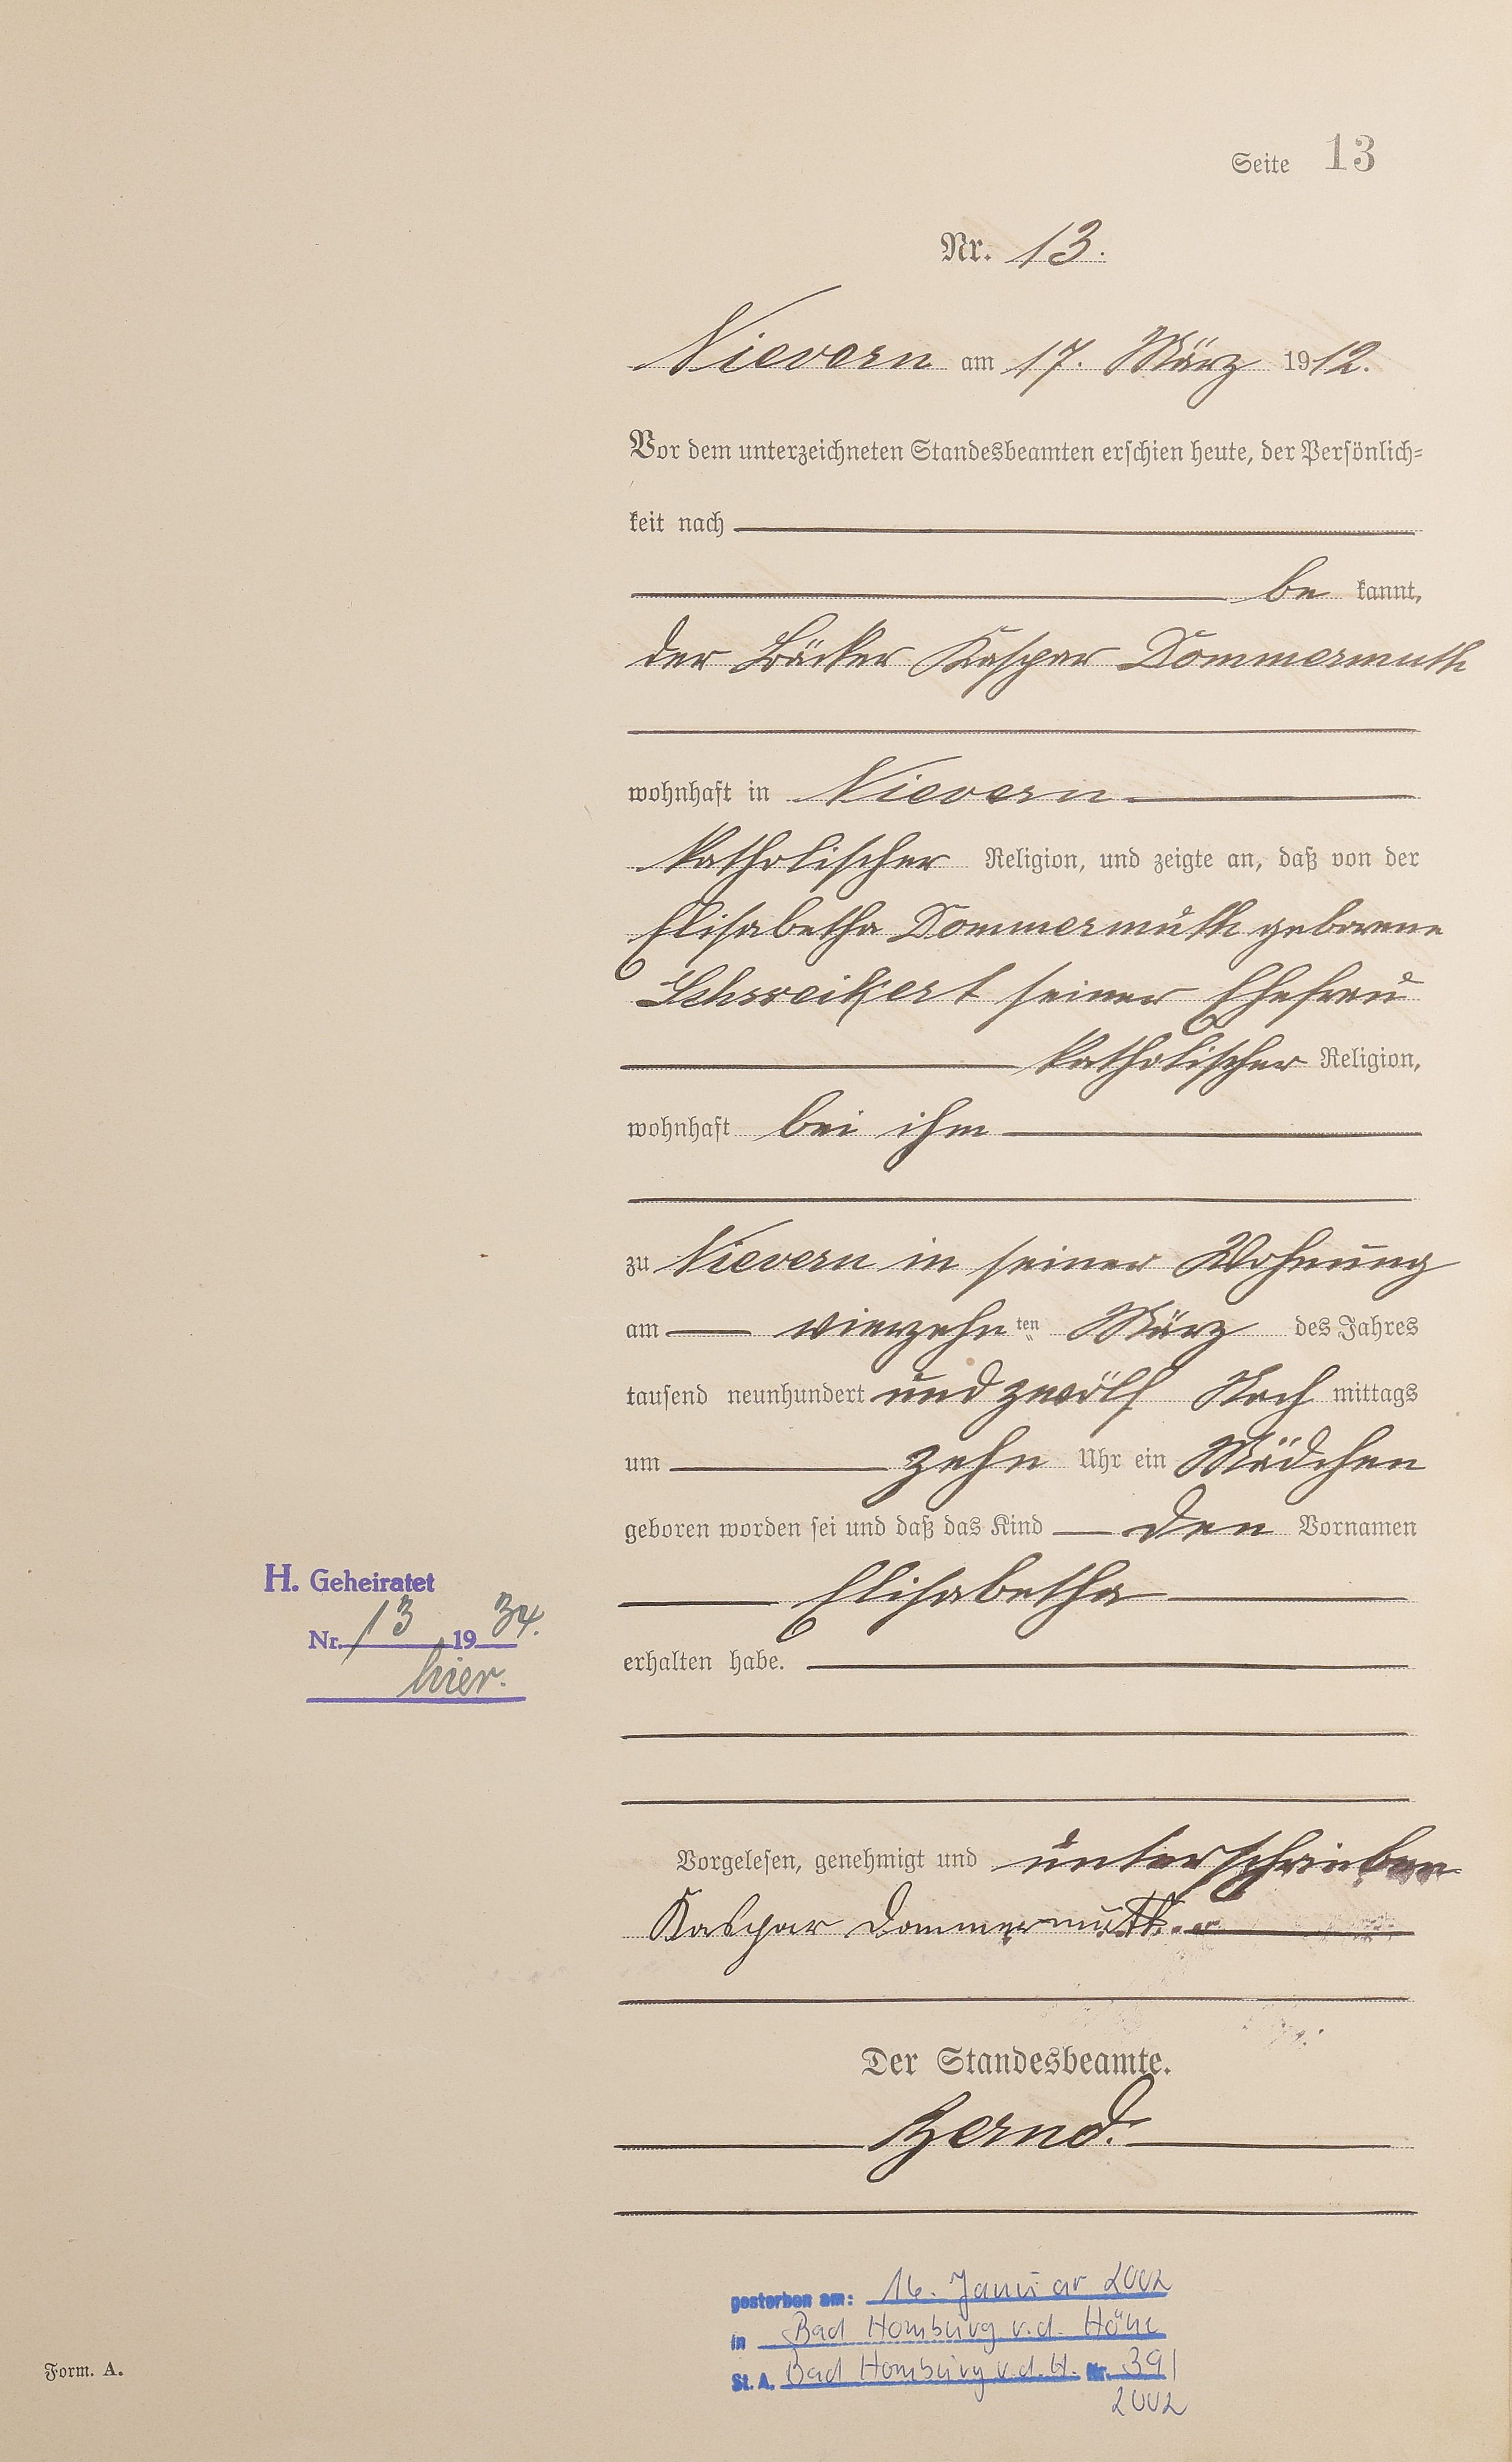 Seite 13
Nr. 13.
Nievern am 17. März 1912.
Vor dem unterzeichneten Standesbeamten erschien heute, der Persönlich=
keit nach
be kannt,
der Bäcker Kaspar Dommermuth
wohnhaft in Nievern
katholischer Religion, und zeigte an, daß von der
Elisabetha Dommermuth geborene
Schweikert seiner Ehefrau
katholischer Religion,
wohnhaft bei ihm
zu Nievern in seiner Wohnung
am vierzehnten März des Jahres
tausend neunhundert und zwölf Nachmittags
um zehn Uhr ein Mädchen
geboren worden sei und daß das Kind den Vornamen
Elisabetha
erhalten habe.
H. Geheiratet
Nr. 13 1934.
hier.
Vorgelesen, genehmigt und unterschrieben
Kaspar Dommermuth.
Der Standesbeamte.
gestorben am: 16. Januar 2002
in Bad Homburg v.d. Höhe
St. A. Bad Homburg v.d.H. Nr. 391
2002
Form. A.